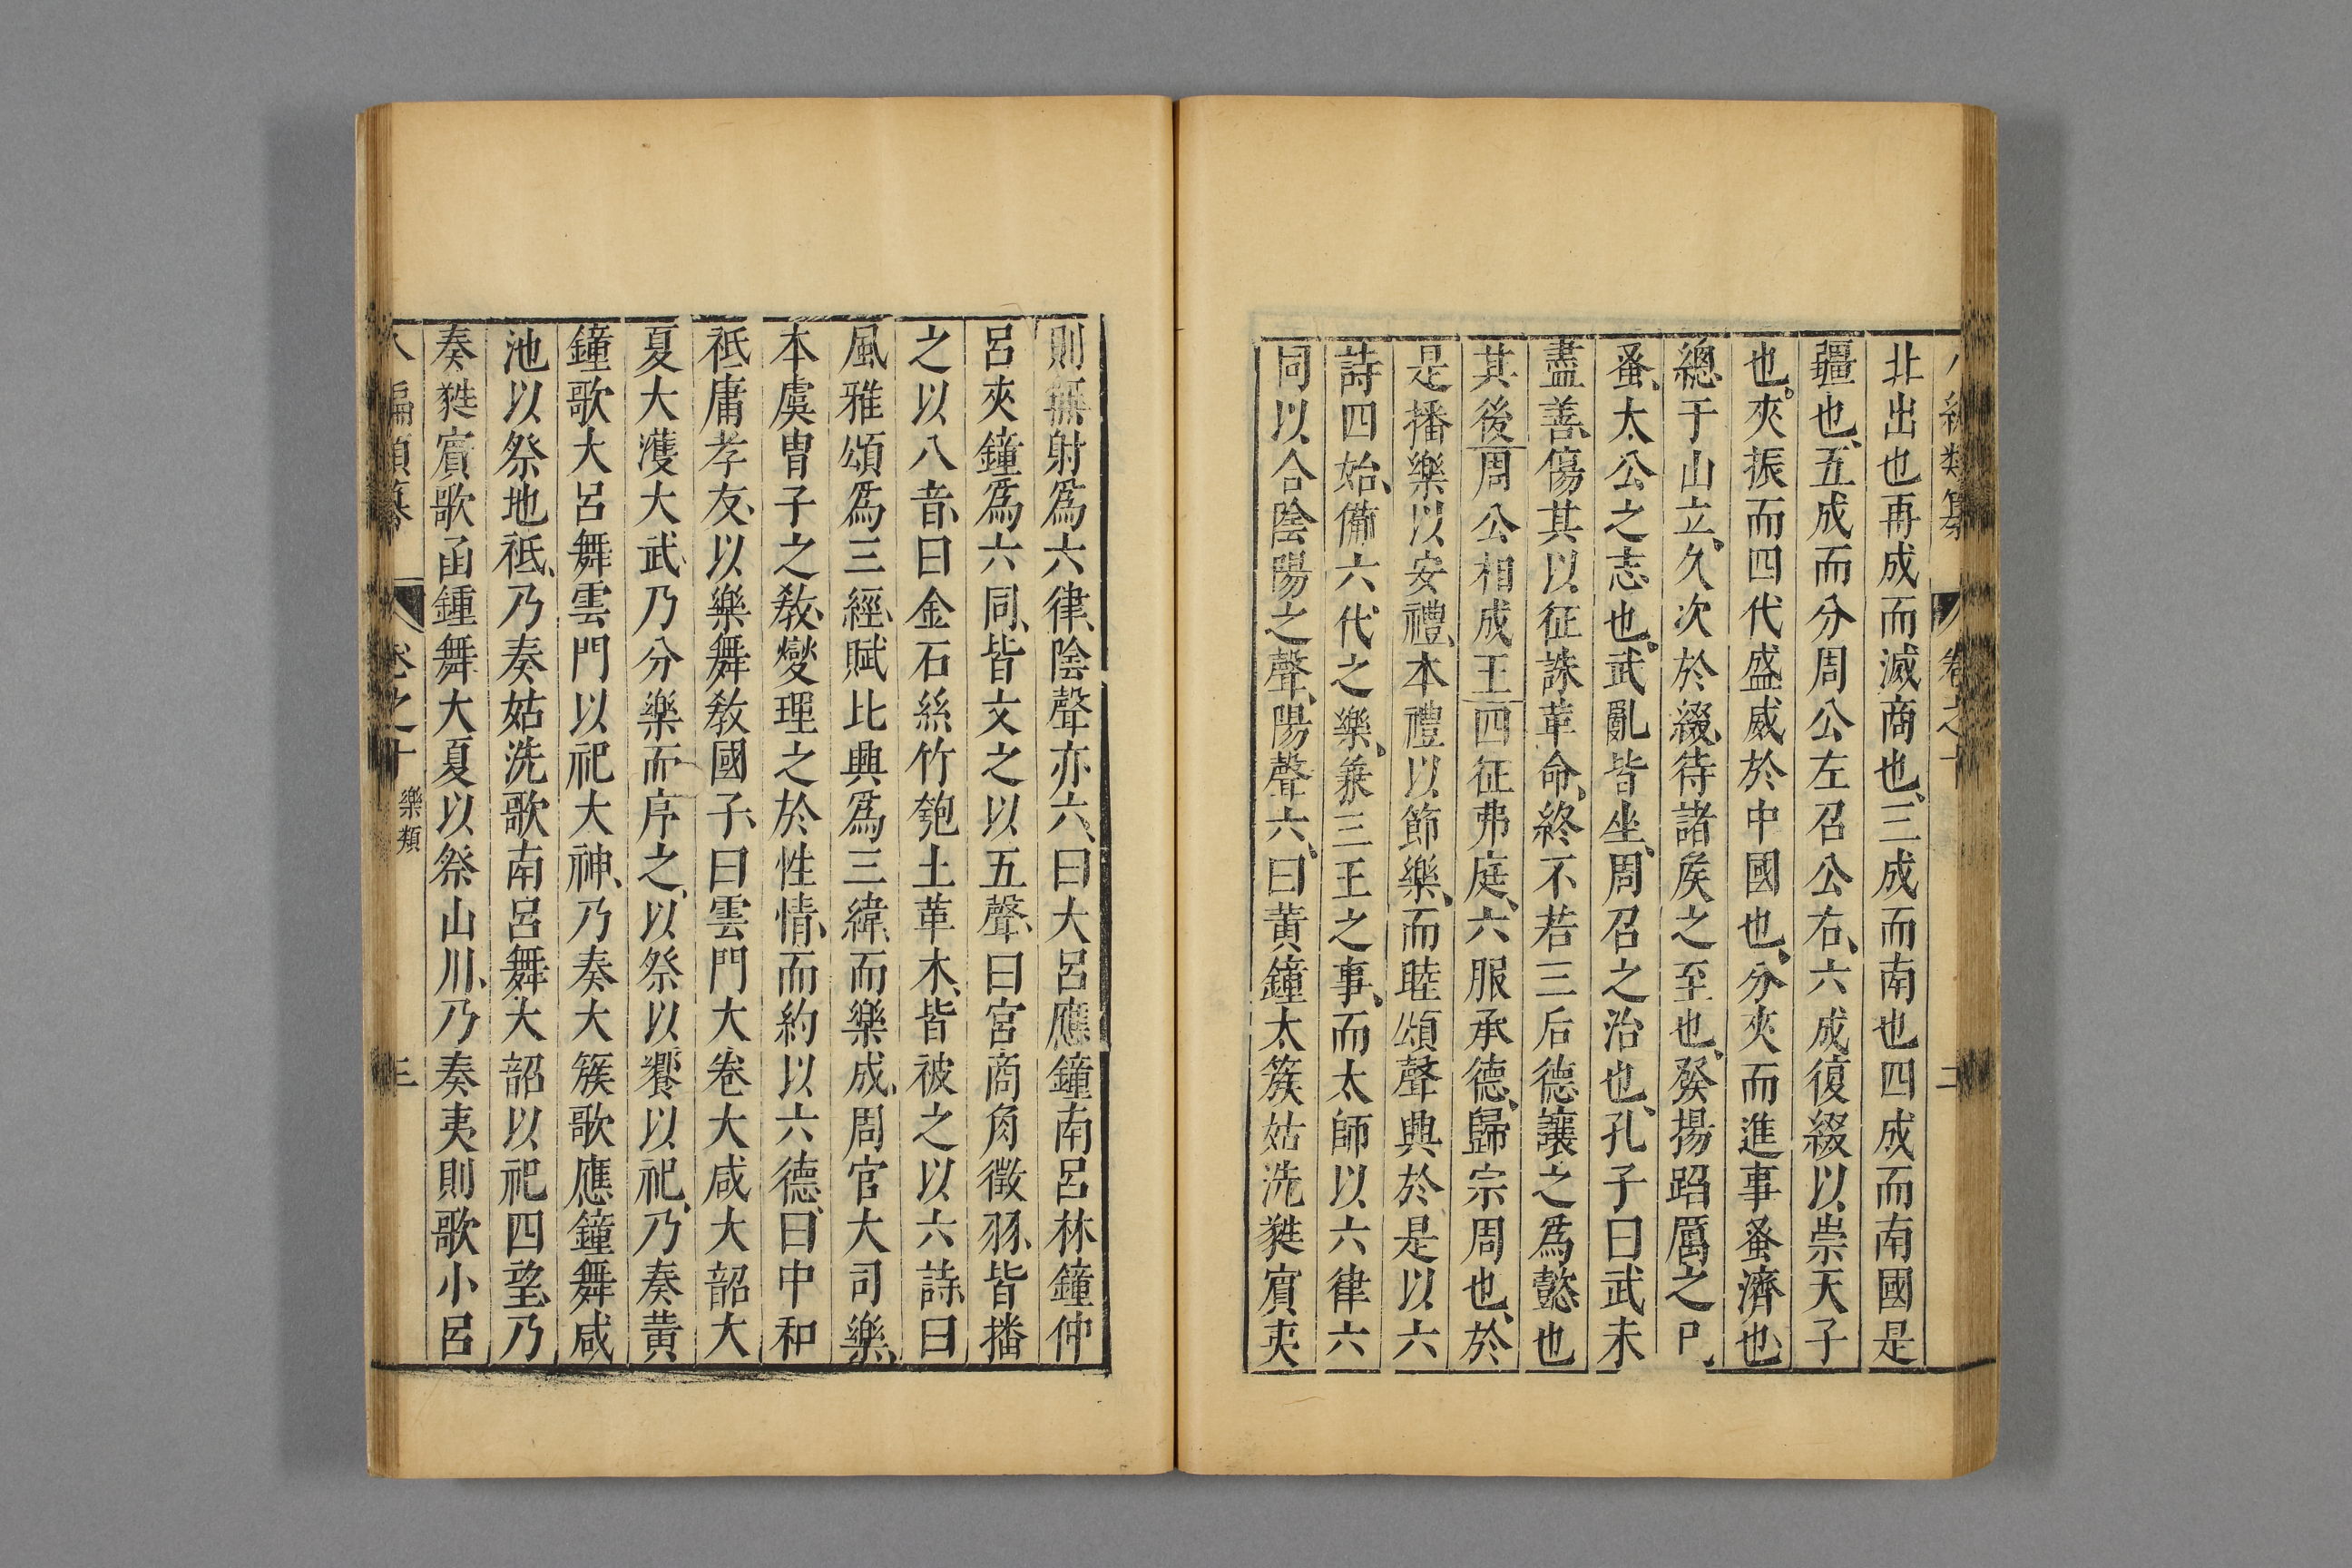 北出也再成而滅商也、三成而南也四成而南國是
疆也、五成而分周公左召公右、六成復綴以崇天子
也。夾振而四代盛威於中國也、分夾而進事蚤濟也、
總于山立、久次於綴、待諸矦之至也、發揚蹈厲之已、
蚤、太公之志也。武亂皆坐、周召之治也、孔子曰武未
盡善、傷其以征誅革命、終不若三后德讓之爲懿也
其後周公相成王四征弗庭、六服承德、歸宗周也、於
是播樂以安禮、本禮以節樂、而睦頌聲興於是以六
詩四始、備六代之樂、兼三王之事、而太師以六律六
同以合陰陽之聲、陽聲六、曰黃鐘太簇姑洗蕤賓夷
則無射爲六律、陰聲亦六、曰大呂應鐘南呂林鐘仲
呂夾鐘爲六同、皆文之以五聲、曰宮商角徵羽、皆播
之以八音、曰金石絲竹匏土革木、皆被之以六詩、曰
風雅頌爲三經、賦比興爲三緯、而樂成、周官大司樂、
本虞胄子之敎、燮理之於性情、而約以六德、曰中和
祗庸孝友、以樂舞敎國子、曰雲門大卷大咸大韶大
夏大濩大武、乃分樂而序之、以祭以饗以祀、乃奏黃
鐘歌大呂舞雲門以祀大神、乃奏大簇歌應鐘舞咸
池以祭地祗、乃奏姑洗歌南呂舞大韶以祀四望、乃
奏蕤賓歌函鍾舞大夏以祭山川、乃奏夷則歌小呂
卷之十
樂類
三